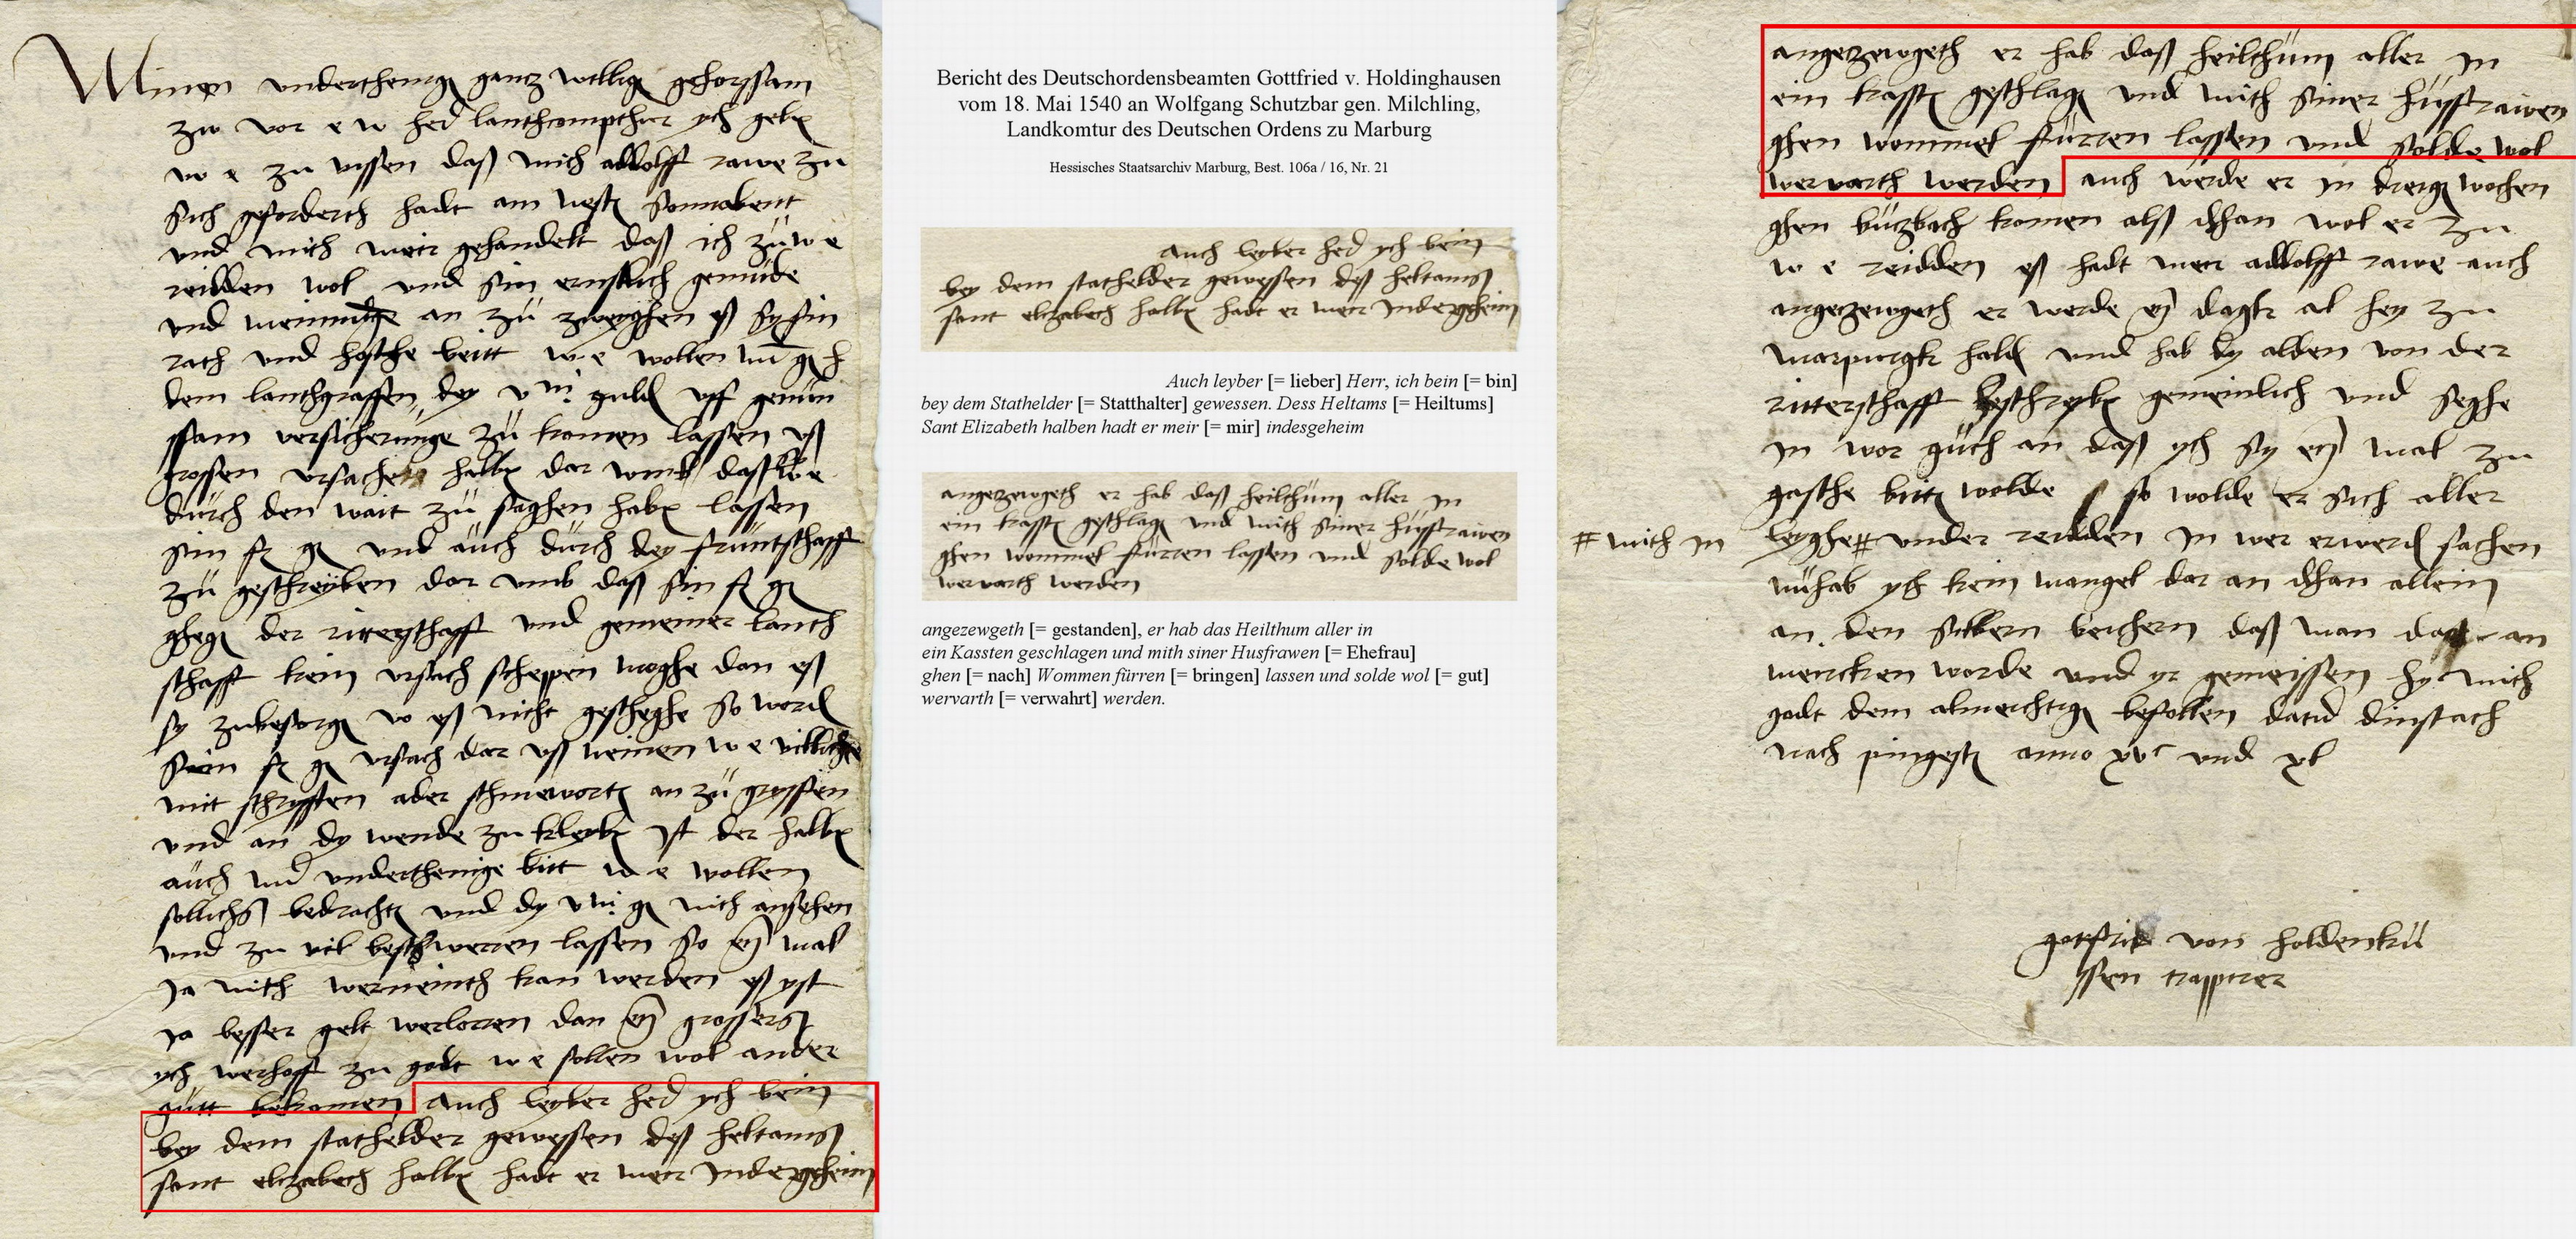 Minen underthenig gantz willig gehorssam
zu vor e w her lanthompthur ych geben
w e zu wissen daß mich adolff rawe zu
sich gefordertt hadt am nest sonnabent
und mich meir gehandelt daß ich zu w e
reidden wol und sin ernstlich gemude
und an zu zweyghen eß sy sin
rath und beitt w e wollen g h
dem lanthgraffen dey guld uff genun
ssam versicherunge zu komen lassen uß
grossen ursachen halben dar umb daß w e
durch den wait zu saghen haben lassen
sin f g und auch durch dey fruntschafft
zu geschreyben dar umb daß sin f g
ghegen der ritterschafft und gemeiner lanth
schafft kein ursach scheppen moghe dan eß
sy zubesorgen w eß nicht gescheghe so word
sein f g ursach dar uß neimen w e
mit schryfften ader schmeworten an zu gryffen
und an dy wende zu kleyben yst der halben
auch underthenige bitt w e wollen
sollichs bedrachten und dy g nich ansehen
und zu vil beschwerren lassen so mal
ja nith werneinth kan werden eß yst
ja besser gelt werlorren dan grossers
ych werhoff zu godt w e sollen wol ander
gutt bekomen auch leyber her ych bein
bey dem stathelder gewessen deß heltams
sant elizabeth halben hadt er meir Indesgeheim
Bericht des Deutschordensbeamten Gottfried v. Holdinghausen
vom 18. Mai 1540 an Wolfgang Schutzbar gen. Milchling,
Landkomtur des Deutschen Ordens zu Marburg
Hessisches Staatsarchiv Marburg, Best. 106a / 16, Nr. 21
auch leyber her ych bein
bey dem stathelder gewessen deß heltams
sant elizabeth halben hadt er meir Indesgeheim
Auch leyber [= lieber] Herr, ich bein [= bin]
bey dem Stathelder [= Statthalter] gewessen. Dess Heltams [= Heiltums]
Sant Elizabeth halben hadt er meir [= mir] indesgeheim
angezewgeth er hab daß heilthum aller In
ein kassten geschlagen und mith siner husfrawen
ghen wommen furren lassen und solde wol
wervarth werden
angezewgeth [= gestanden], er hab das Heilthum aller in
ein Kassten geschlagen und mith siner Husfrawen [= Ehefrau]
ghen [= nach] Wommen fürren [= bringen] lassen und solde wol [= gut]
wervarth [= verwahrt] werden.
angezewgeth er hab daß heilthum aller In
ein kassten geschlagen und mith siner husfrawen
ghen wommen furren lassen und solde wol
wervarth werden auch werde er In dreigen wochen
ghen butzbach komen alß dhan wol er zu
w e reidden eß hadt meir adolff rawe auch
angezewgeth er werde dagk al hey zu
marpurgk halden und hab dy alden von der
ritterschafft beschryben gemeinlich und seghe
In wor guth an daß ych sy mal zu
gasthe bitten wolde so wolde er sich aller
# mith In leyghe # under reidden In wer erwerd sachen
nu hab ych kein mangel dar an dhan allein
an den silbern bechern daß man an
mercken worde und yr gemeissen hy mith
godt dem almechtigen befollen datum dinstach
nach pingesten anno xvc und xl
gotfrid von holdenku
ssen trappirer